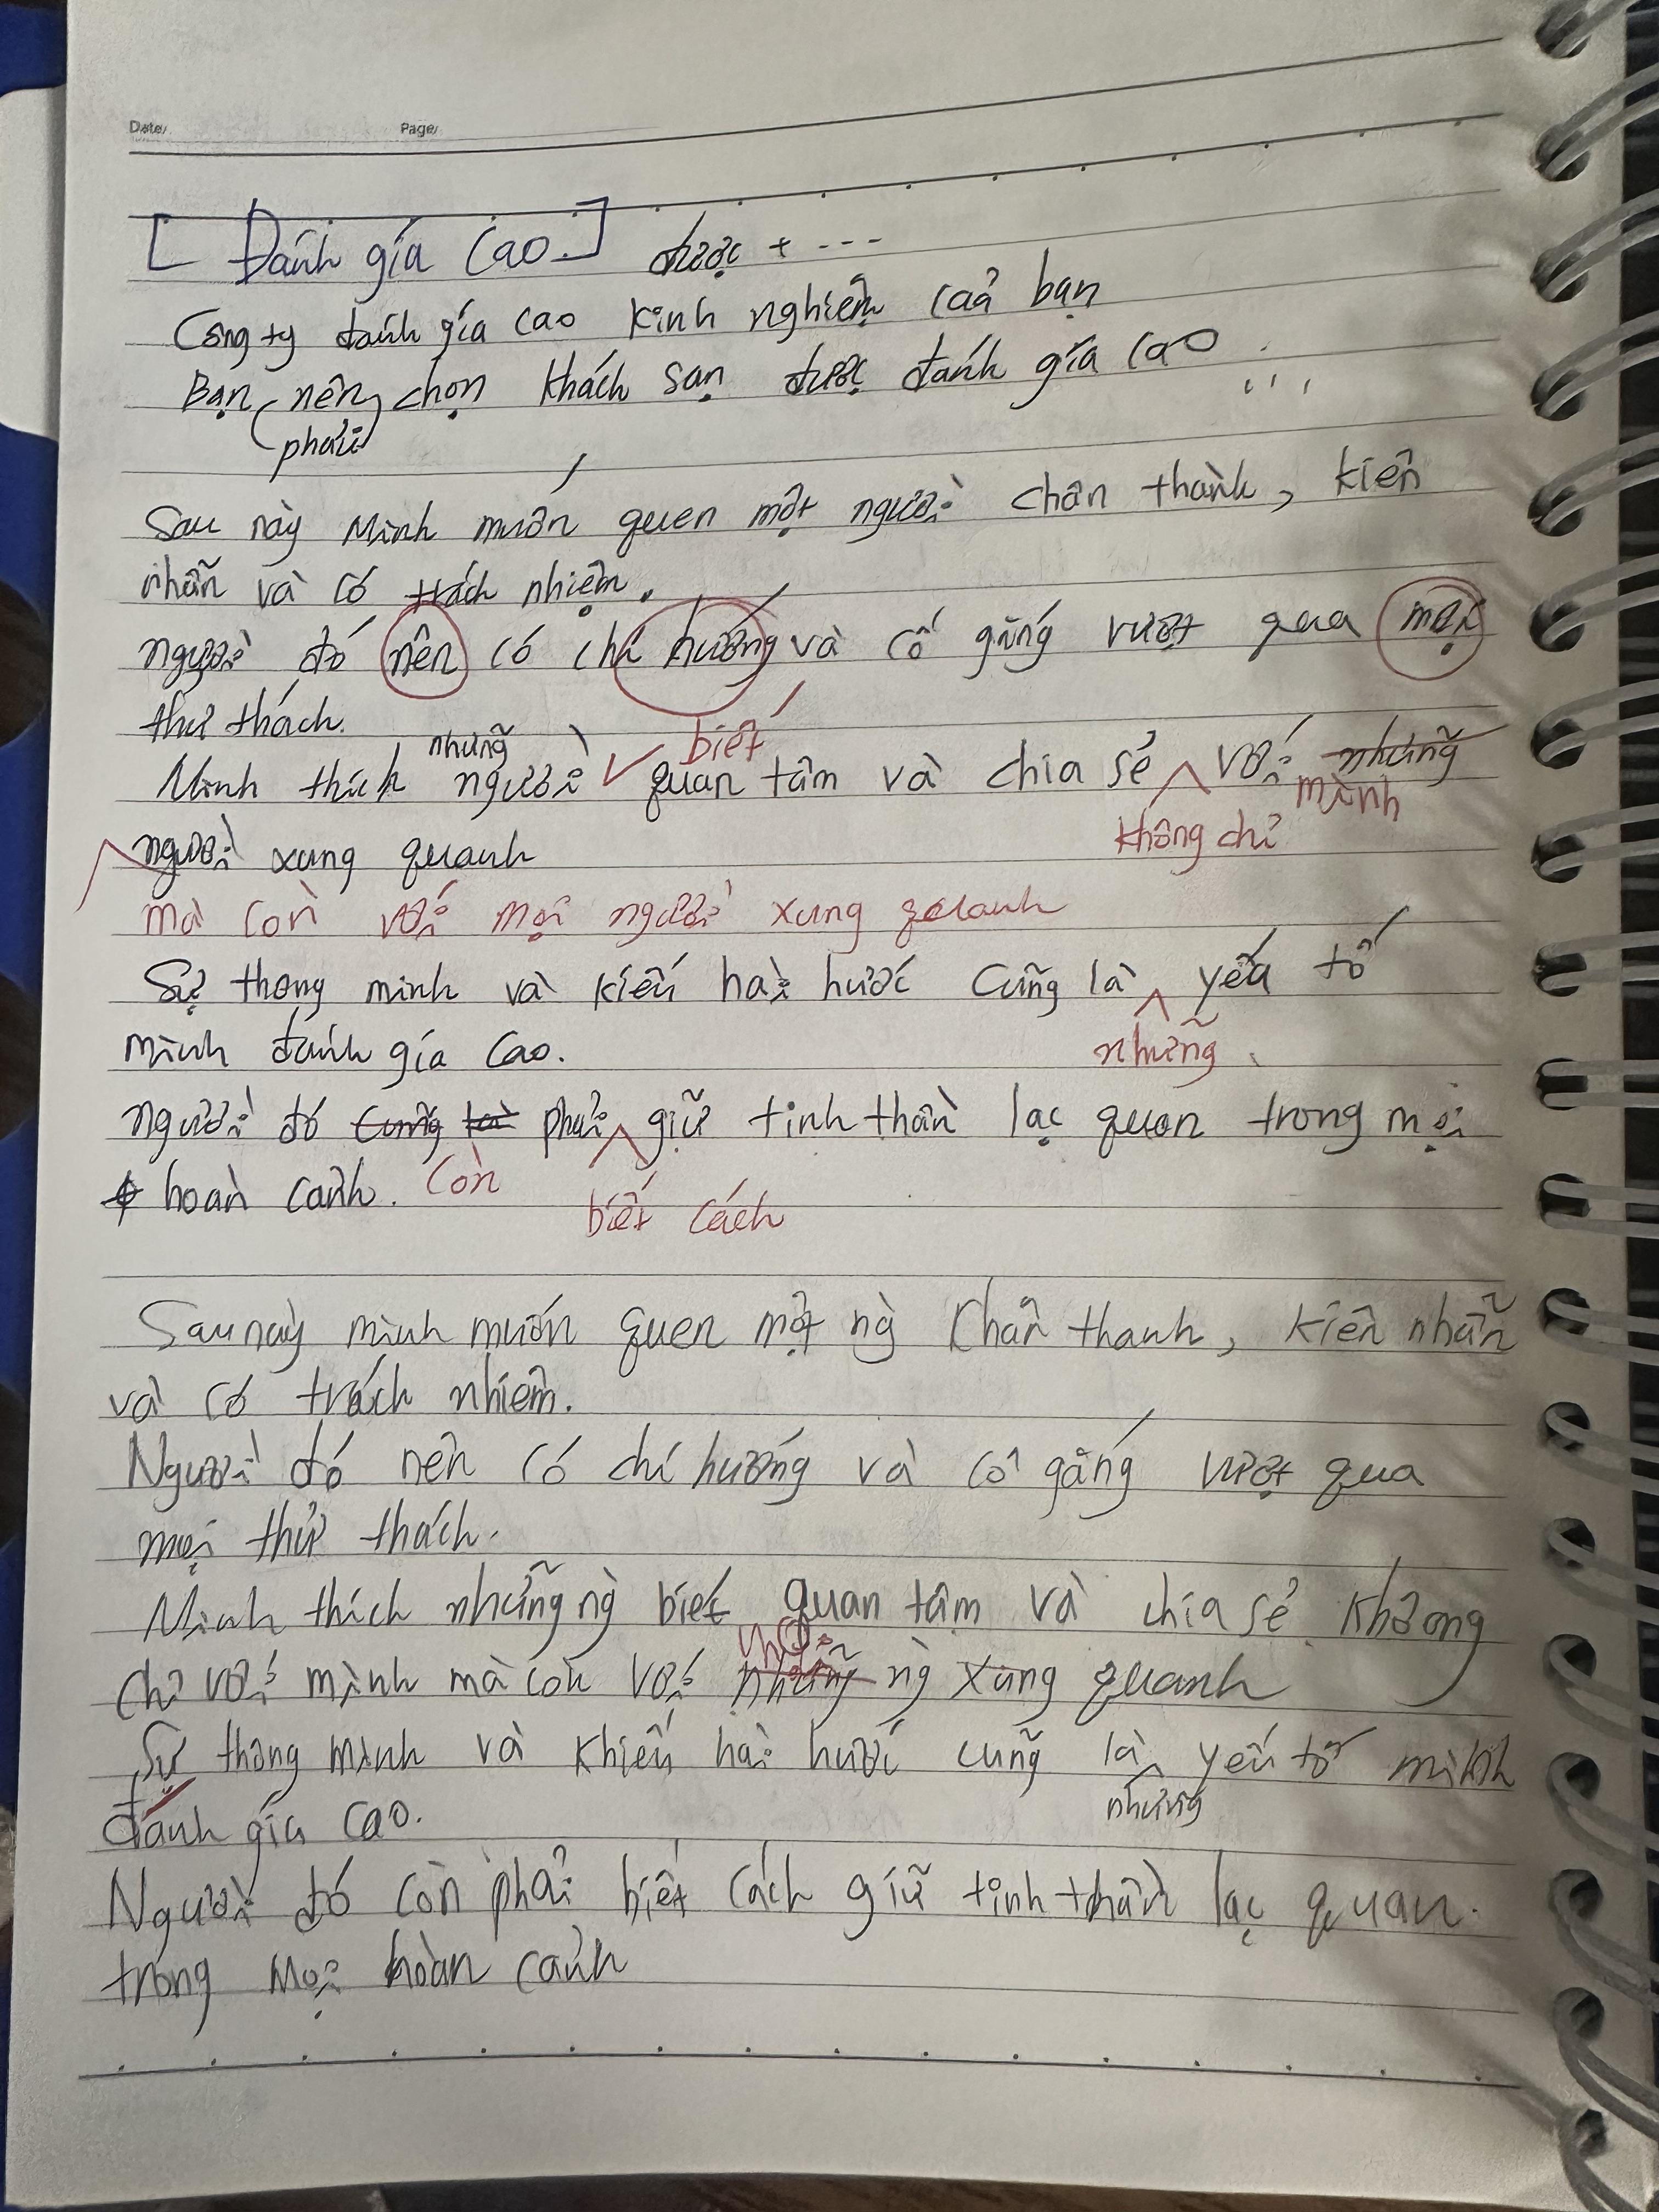 Date/ Page/
[Đánh gía Cao.] được + ---
Công ty đánh gía cao kinh nghiệm cuả bạn
Bạn (nên) chọn khách sạn được đánh gía cao ...
phải
Sau này Mình muốn quen một người chân thành, kiên
nhẫn và có trách nhiệm.
người đó nên có chí hướng và cố gắng vượt qua mọi
thử thách.
những biết
Mình thích người quan tâm và chia sẻ với những
không chỉ mình
người xung quanh
mà còn với mọi người xung quanh
Sự thong minh và kiếu hài hước cũng là yếu tố
mình đánh gía cao. những
người đó cũng là phải giữ tinh thần lạc quan trong mọi
hoàn cảnh. còn biết cách
Sau này mình muốn quen một ng` chân thanh, kiên nhẫn
và có trách nhiêm.
Người đó nên có chí hướng và cô gắng vượt qua
mọi thử thách.
Mình thích những ng` biết quan tâm và chia sẻ không
mọi
chỉ với mình mà còn với những ng` xung quanh
Sự thông minh và khiếu hài hước cũng là yếu tố mình
những
đánh gía cao.
Người đó còn phải biết cách giữ tinh thần lạc quan.
trong mọi hoàn cảnh